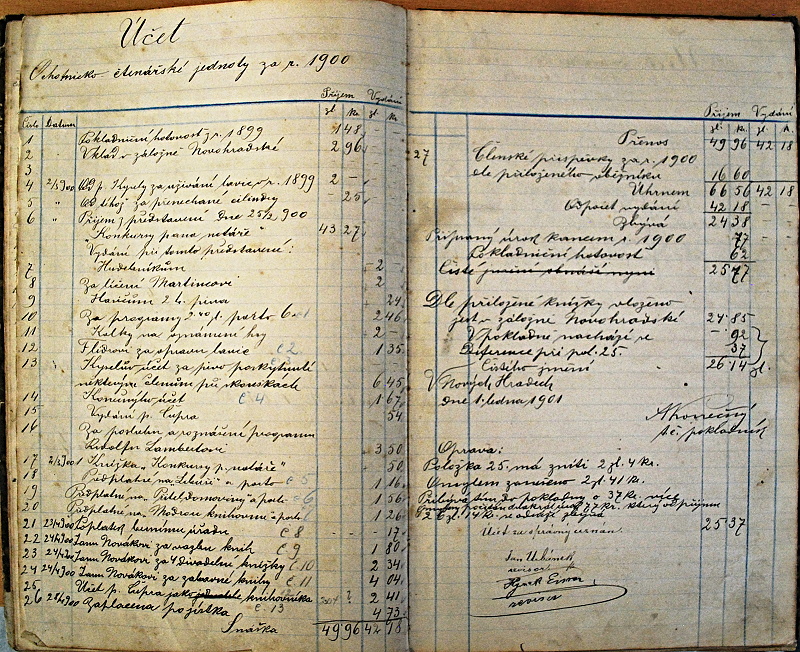 Účet
Ochotnicko čtenářské jednoty za r. 1900
Příjem Vydání
Číslo Datum zl. kr. zl. kr.
1 Pokladniční hotovost z r. 1899 1 48
2 Vklad v záložně Novohradské 2 96
3
4 2/1 900 Od p. Kysely za užívání lavic r. 1899 2 –
5 " Od téhož za přenechané cilindry – 25
6 " Příjem z představení dne 25/2 900
"Konkursy pana notáře" 43 27
Vydání při tomto představení:
7 Hudebníkům 2 –
8 Za líčení Martincovi 2
9 Havlům 2 l. piva 24
10 Za programy 2 40 zl. porto 6 2 46
11 Kolky na oznámení hry 2 –
12 Flídrovi za opravu lavic č 2 1 35
13 Kyselův účet za pivo poskytnuté
některým členům při zkouškách 6 45
14 účet č 4 1 67
15 Vydání p. Cupra 54
16 Za posluhu a roznášení programů
Rudolfu Lambertovi 3 50
17 Knížka "Konkursy p. notáře" – 50
18 Předplatné na a porto č 5 1 16
19 Předplatné na a porto č 6 1 56
20 Předplatné na knihovnu porto 1 26
21 Poplatek bernímu úřadu č 8 – 17
22 Janu Novákovi za vazbu knih č 9 1 80
23 Janu Novákovi za 4 divadelní knížky č 10 2 34
24 Janu Novákovi za zábavné knihy č 11 4 04
25 Účet p. Cupra jako knihovníka ? 2 41
26 Zaplacena pojistka č. 13 4 73
Snáška 49 96 42 18
Příjem Vydání
zl. kr. zl. k.
Přenos 49 96 42 18
27 Členské příspěvky za r. 1900
dle přiloženého oběžníku 16 60
Úhrnem 66 56 42 18
Odpočet vydání 42 18
Zbývá 24 38
Připsaný úrok koncem r. 1900 77
Pokladniční hotovost 62
Čisté jmění obnáší nyní 25 77
Dle přiložené knížky vloženo
jest v záložně Novohradské 24 85
V pokladně nachází se – 92
Diference při pol. 25 37
Čistého jmění 26 14 zl.
V Nových Hradech
dne 1. ledna 1901
A Konečný
t. č. pokladník
Oprava:
Položka 25 má zníti 2 zl. 4 kr.
Omylem zaneseno 2 zl. 41 kr.
Přibývá tím do pokladny o 37 kr. více
25 37
Účet za správný uznán.
Jan Urbánek
revisor
Hynek
revisor